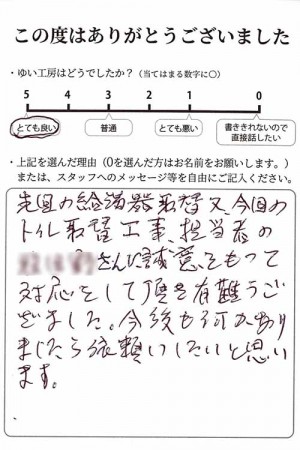 この度はありがとうございました
・ゆい工房はどうでしたか？（当てはまる数字に○）
5 4 3 2 1 0
とても良い 普通 とても悪い 書ききれないので直接話したい
・上記を選んだ理由（0を選んだ方はお名前をお願いします。）
または、スタッフへのメッセージ等を自由にご記入ください。
先回の給湯器取替又、今回の
トイレ取替工事、担当者の
さんに誠意をもって
対応をして頂き有難うご
ざました。今後も何かあり
ましたら依頼いしたいと思い
ます。